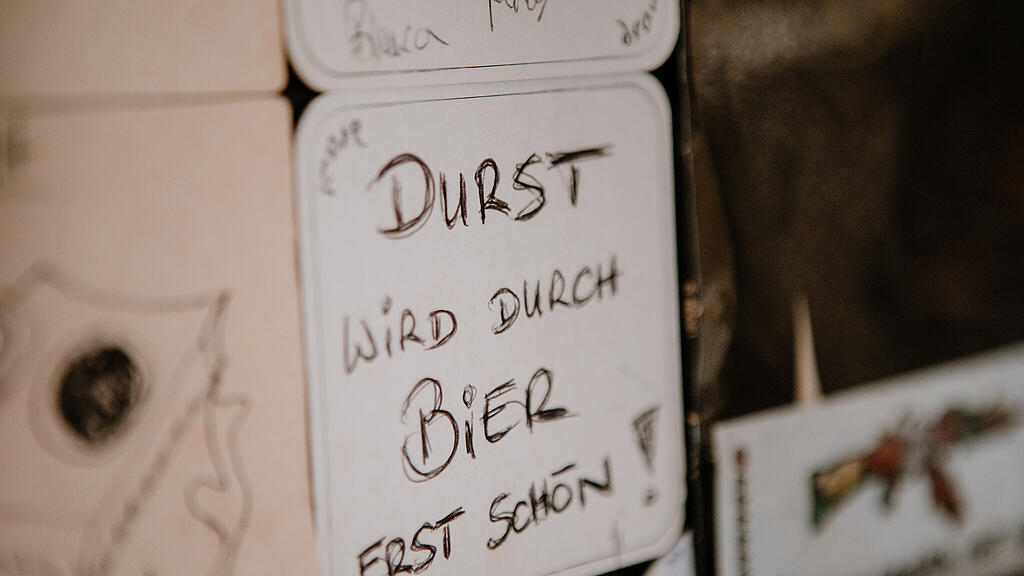 Bianca
DURST
WiRD DURCH
BiER
ERST SCHÖN!